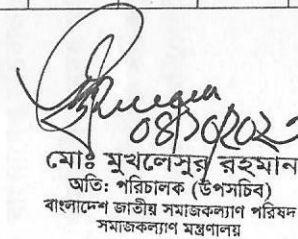 08/10/202
মোঃ মুখলেসুর রহমান
অতি: পরিচালক (উপসচিব)
বাংলাদেশ জাতীয় সমাজকল্যাণ পরিষদ
সমাজকল্যাণ মন্ত্রণালয়